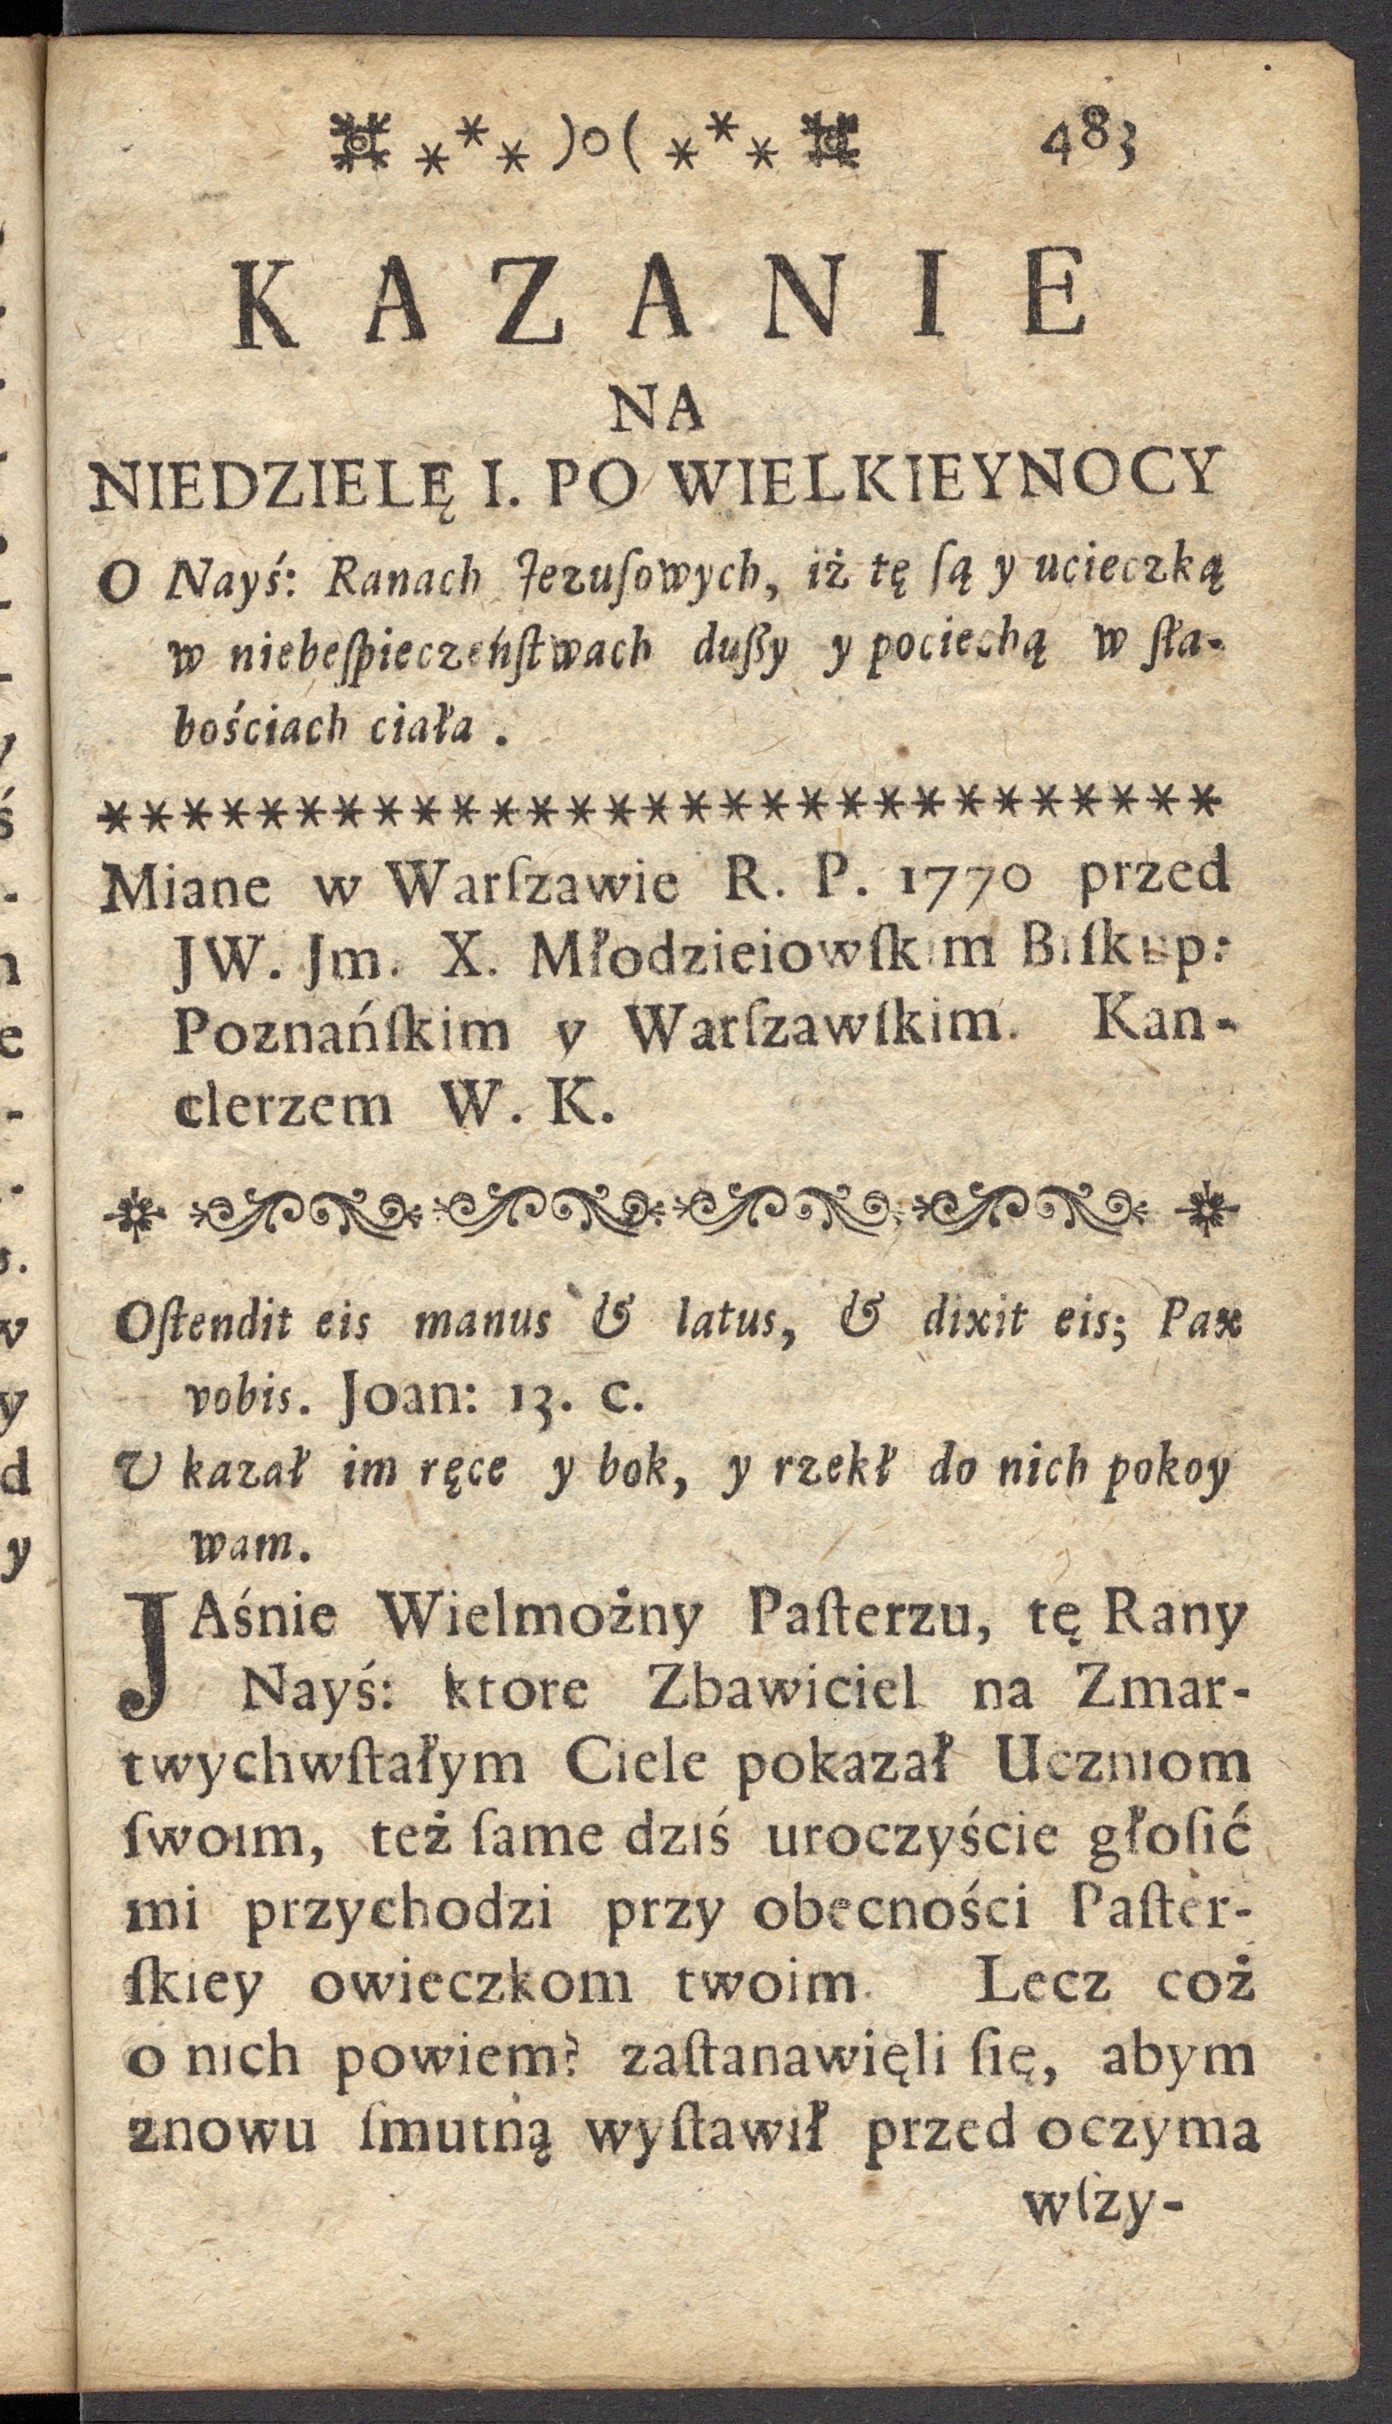 )o( 483
KAZANIE
NA
NIEDZIELĘ I. PO WIELKIEYNOCY
O Nayś: Ranach Jezuſowych, iż tę ſą y ucieczką
w niebeſpieczeńſtwach dußy y pociechą w ſła-
bościach ciała.
*****************************
Miane w Warſzawie R. P. 1770 przed
JW. Jm. X. Młodzieiowſkim Biſkup:
Poznańſkim y Warſzawſkim. Kan-
clerzem W. K.
Oſtendit eis manus & latus, & dixit eis; Pax
vobis. Joan: 13. c.
U kazał im ręce y bok, y rzekł do nich pokoy
wam.
JAśnie Wielmożny Paſterzu, tę Rany
Nayś: ktore Zbawiciel na Zmar-
twychwſtałym Ciele pokazał Uczniom
ſwoim, też ſame dziś uroczyście głoſić
mi przychodzi przy obecności Paſter-
ſkiey owieczkom twoim. Lecz coż
o nich powiem? zaſtanawięli ſię, abym
znowu ſmutną wyſtawił przed oczyma
wſzy-